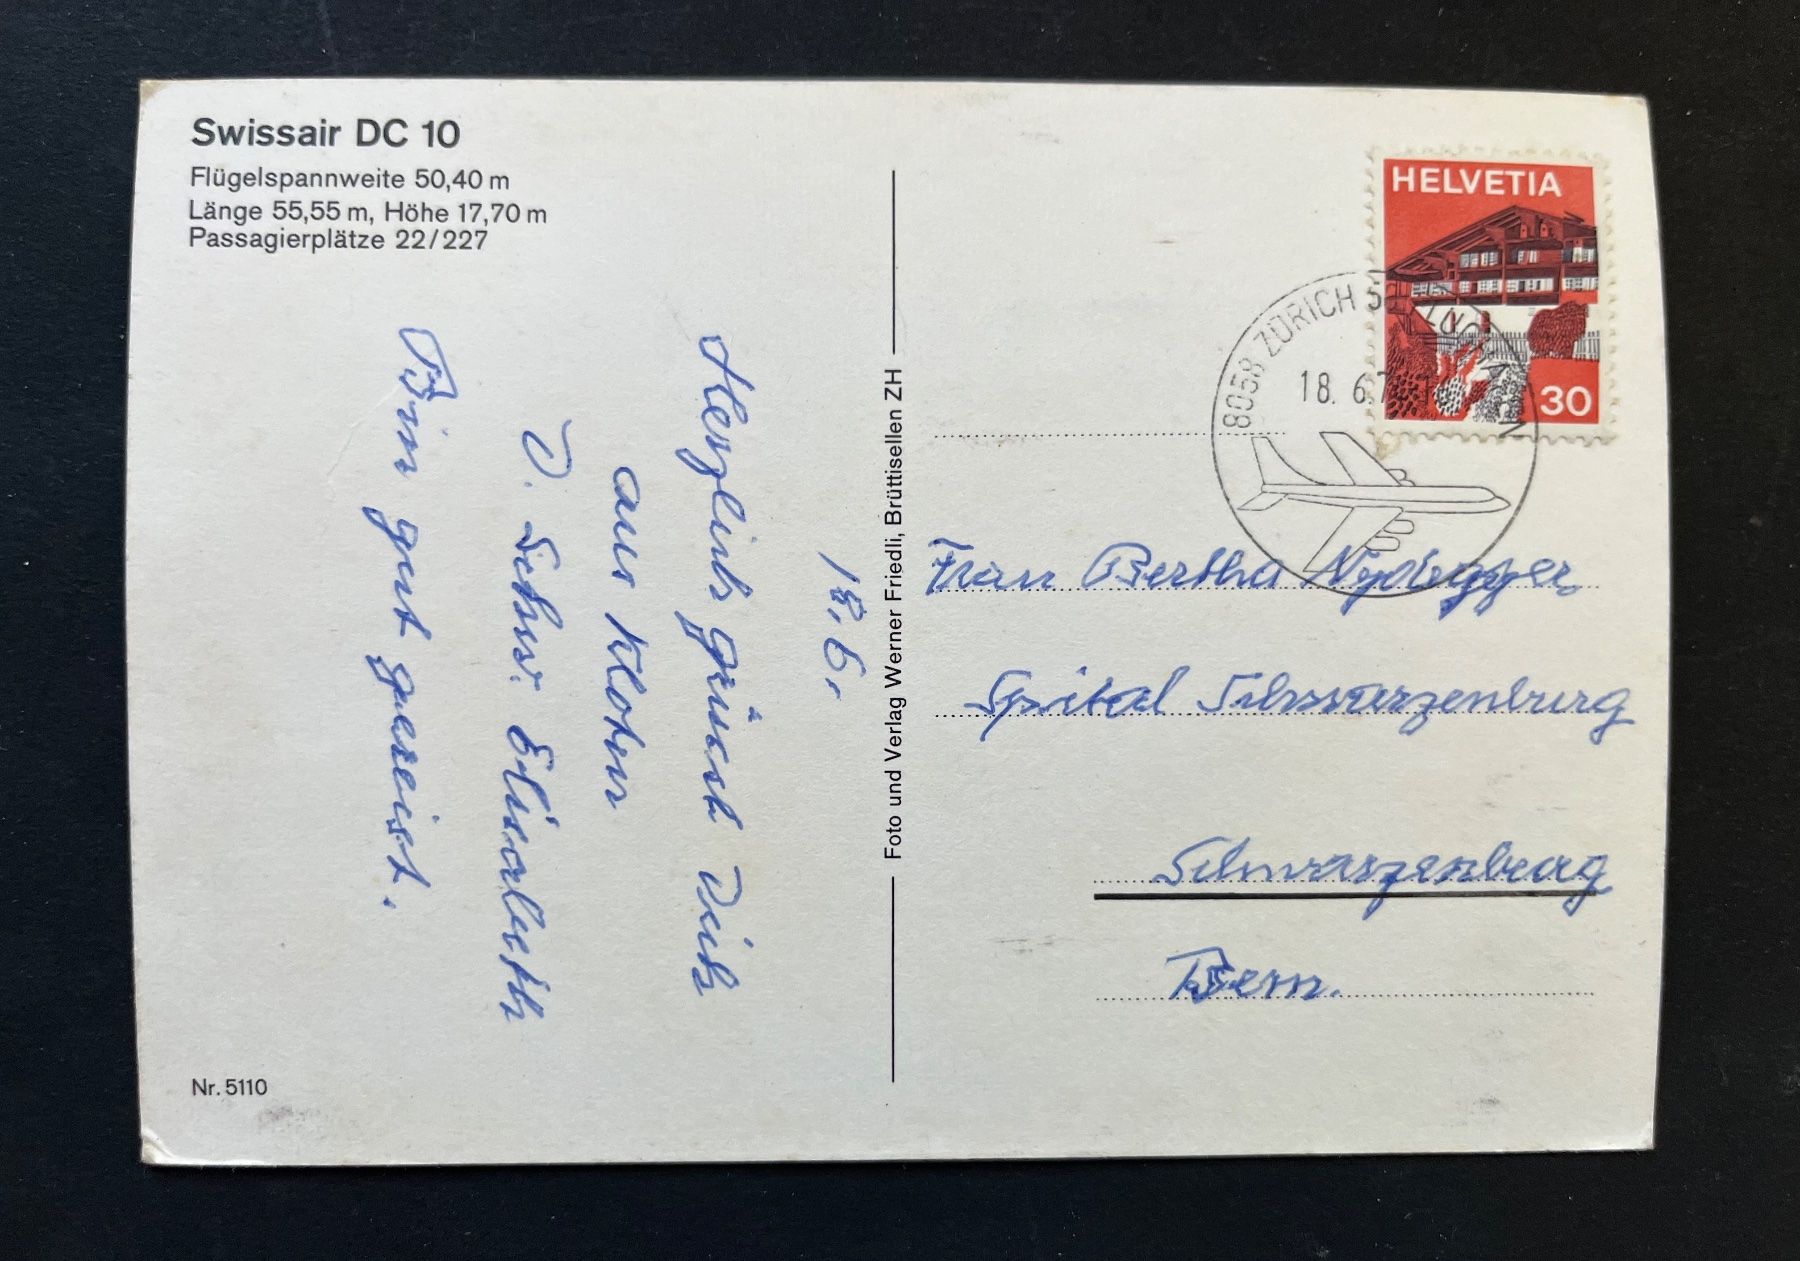 Swissair DC 10
Flügelspannweite 50,40 m
Länge 55,55 m, Höhe 17,70 m
Passagierplätze 22/227
18.6.
Herzlich grüsst Dich
aus Kloten
D. Schw. Elisabeth
Bin gut gereist.
Nr. 5110
Foto und Verlag Werner Friedli, Brüttisellen ZH
HELVETIA
30
8058 ZÜRICH
18. 6. 7
Frau Bertha Nydegger
Spital Schwarzenburg
Schwarzenburg
Bern.